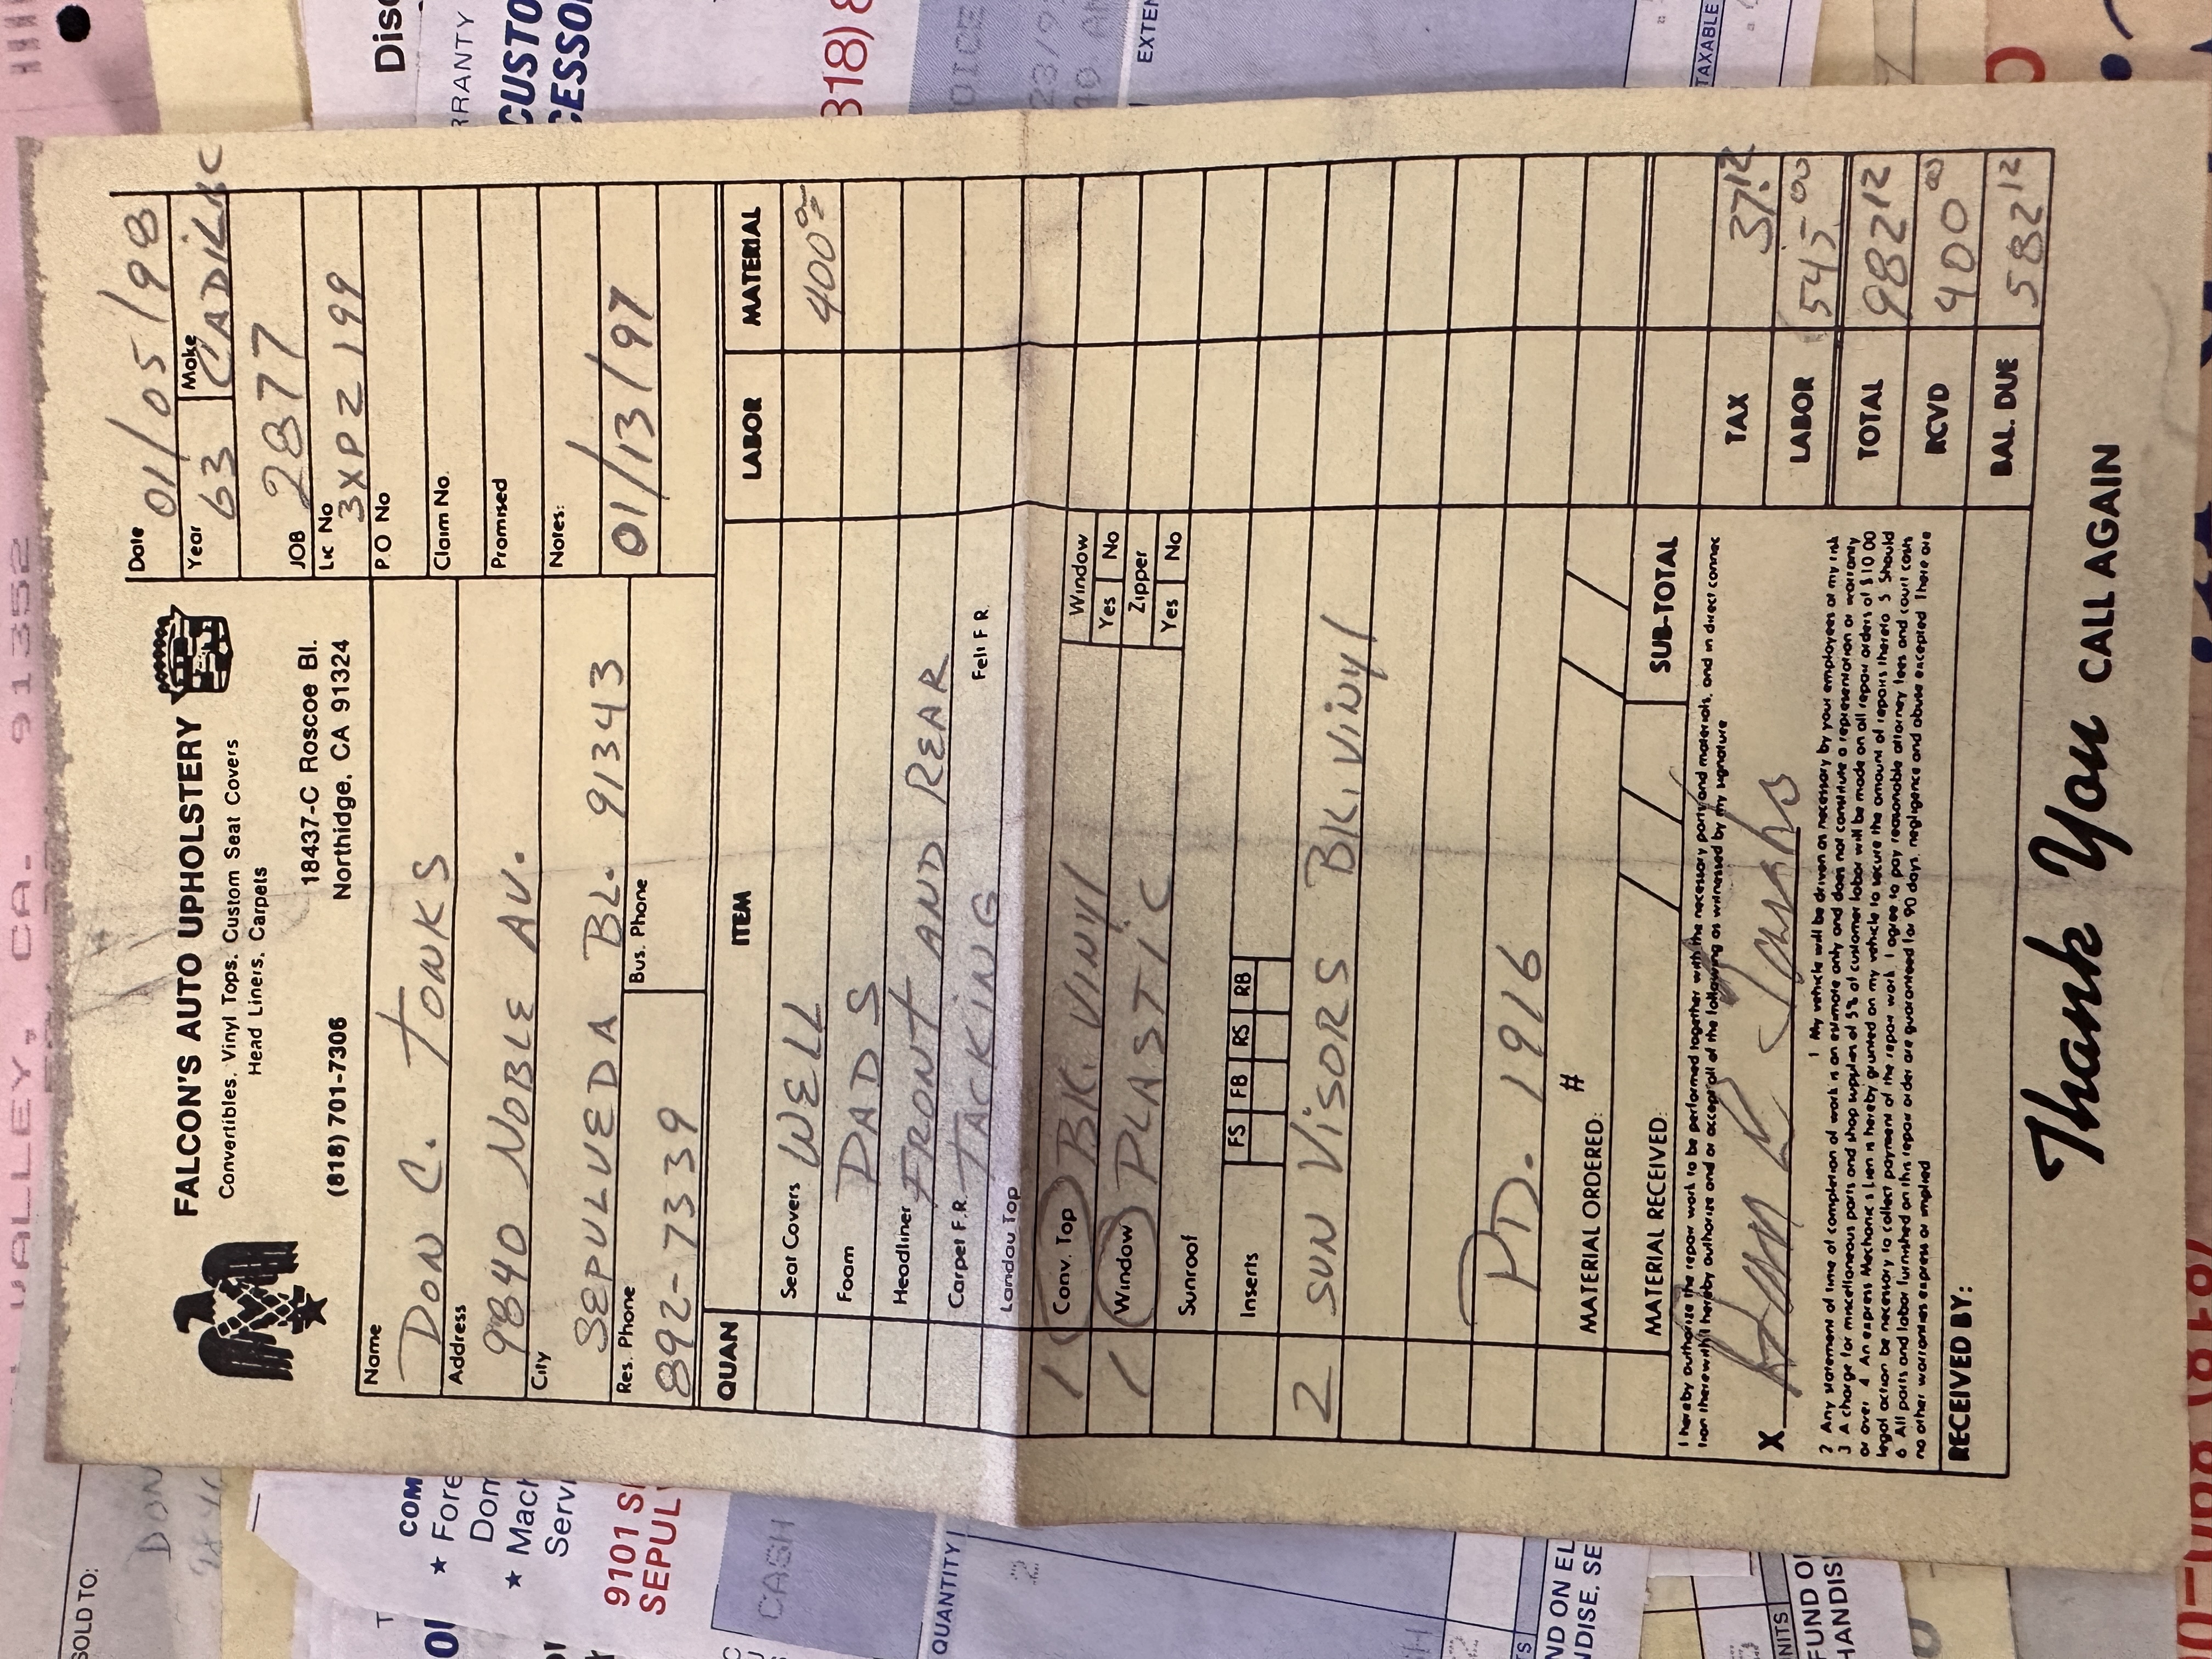 FALCON'S AUTO UPHOLSTERY
Convertibles, Vinyl Tops, Custom Seat Covers
Head Liners, Carpets
18437-C Roscoe Bl.
(818) 701-7306 Northidge, CA 91324
Date 01/05/98
Year 63 Make CADiLAC
JOB 2877
Lic No 3XPZ199
P.O No
Claim No.
Promised
Notes:
01/13/97
Name DON C. TONKS
Address 9840 NOBLE AV.
City SEPULVEDA BL. 91343
Res. Phone 892-7339 Bus. Phone
QUAN ITEM LABOR MATERIAL
Seat Covers WELL 400.00
Foam PADS
Headliner FRONT AND REAR
Carpet F.R. TACKiNG Felt F R
Landau Top
1 Conv. Top BK. ViNyl Window Yes No
1 Window PLASTiC Zipper Yes No
Sunroof
Inserts FS FB RS RB
2 SUN ViSORS BK. ViNyl
PD. 1916
MATERIAL ORDERED: #
MATERIAL RECEIVED: SUB-TOTAL
I hereby authorize the repair work to be performed together with the necessary parts and materials, and in direct connec
tion therewith I hereby authorize and or accept all of the following as witnessed by my signature
X
1 My vehicle will be driven as necessary by your employees at my risk
2 Any statement of time of completion of work is an estimate only and does not constitute a representation or warranty
3 A charge for miscellaneous parts and shop supplies of 5% of customer labor will be made on all repair orders of $10 00
or over 4 An express Mechanic s Lien is hereby granted on my vehicle to secure the amount of repairs thereto 5 Should
legal action be necessary to collect payment of the repair work I agree to pay reasonable attorney fees and court costs
6 All parts and labor furnished on this repair order are guaranteed for 90 days, negligence and abuse excepted There are
no other warranties express or implied
TAX 37.12
LABOR 545-00
TOTAL 982 12
RCVD 400 00
BAL. DUE 582 12
RECEIVED BY:
Thank You CALL AGAIN
VALLEY, CA. 91352
RRANTY
CUSTO
CESSO
318) 8
EXTEN
TAXABLE
SOLD TO:
DON
COM
★ Fore
Dom
★ Mach
Servi
9101 S
SEPUL
CASH
QUANTITY
2
ND ON EL
NDISE. SE
UNITS
FUND O
HANDIS